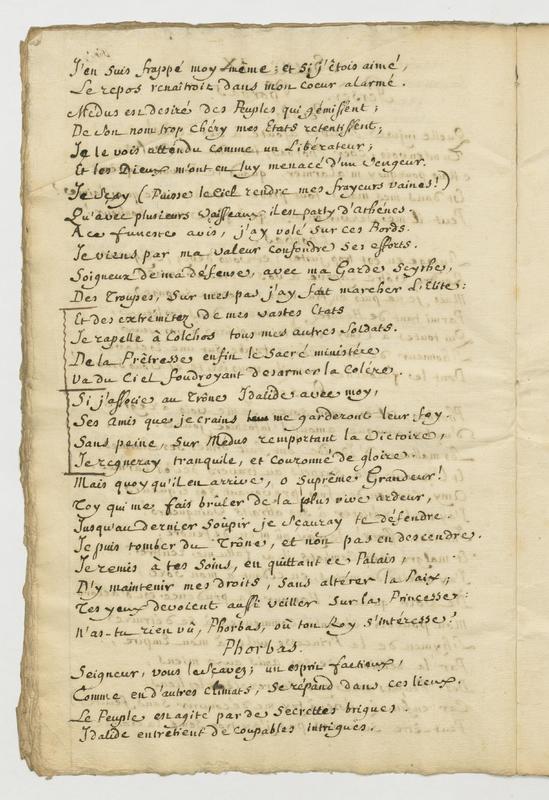 J'en suis frappé moy même; et si j'étois aimé,
Le repos renaitroit dans mon coeur alarmé.
Medus est desiré des Peuples qui gémissent;
De son nom trop chéry mes Etats retentissent;
Je le vois attendu comme un Libérateur;
Et les Dieux m'ont en luy menacé d'un Vengeur.
Je sçay (Puisse le Ciel rendre mes frayeurs vaines!)
Qu'avec plusieurs Vaisseaux, il est party d'Athénes.
A ce funeste avis, j'ay volé sur ces Bords.
Je viens par ma valeur confondre ses efforts.
Soigneux de ma défense, avec ma Garde Scythe,
Des Troupes, sur mes pas j'ay fait marcher l'Elite:
Et des extrémitez de mes vastes Etats
Je rapelle à Colchos tous mes autres Soldats.
De la Prêtresse enfin le Sacré ministére
Va du Ciel foudroyant desarmer la Colére.
Si j'associe au Trône Idalide avec moy,
Ses Amis que je crains me garderont leur foy.
Sans peine, sur Médus remportant la Victoire,
Je regneray tranquile, et couronné de gloire.
Mais quoy qu'il en arrive, o Suprême Grandeur!
Toy qui me fais brûler de la plus vive ardeur,
Jusqu'au dernier Soupir je Sçauray te défendre.
Je puis tomber du Trône, et non pas en descendre.
Je remis à tes Soins, en quittant ce Palais,
D'y maintenir mes droits, sans altérer la Paix;
Tes yeux devoient aussi veiller sur la Princesse:
N'as-tu rien vû, Phorbas, où ton Roy s'intéresse?
Phorbas.
Seigneur, vous le Sçavez; un esprit factieux,
Comme en d'autres climats, se répand dans ces lieux.
Le Peuple est agité par de Secrettes brigues.
Idalide entretient de coupables intrigues.